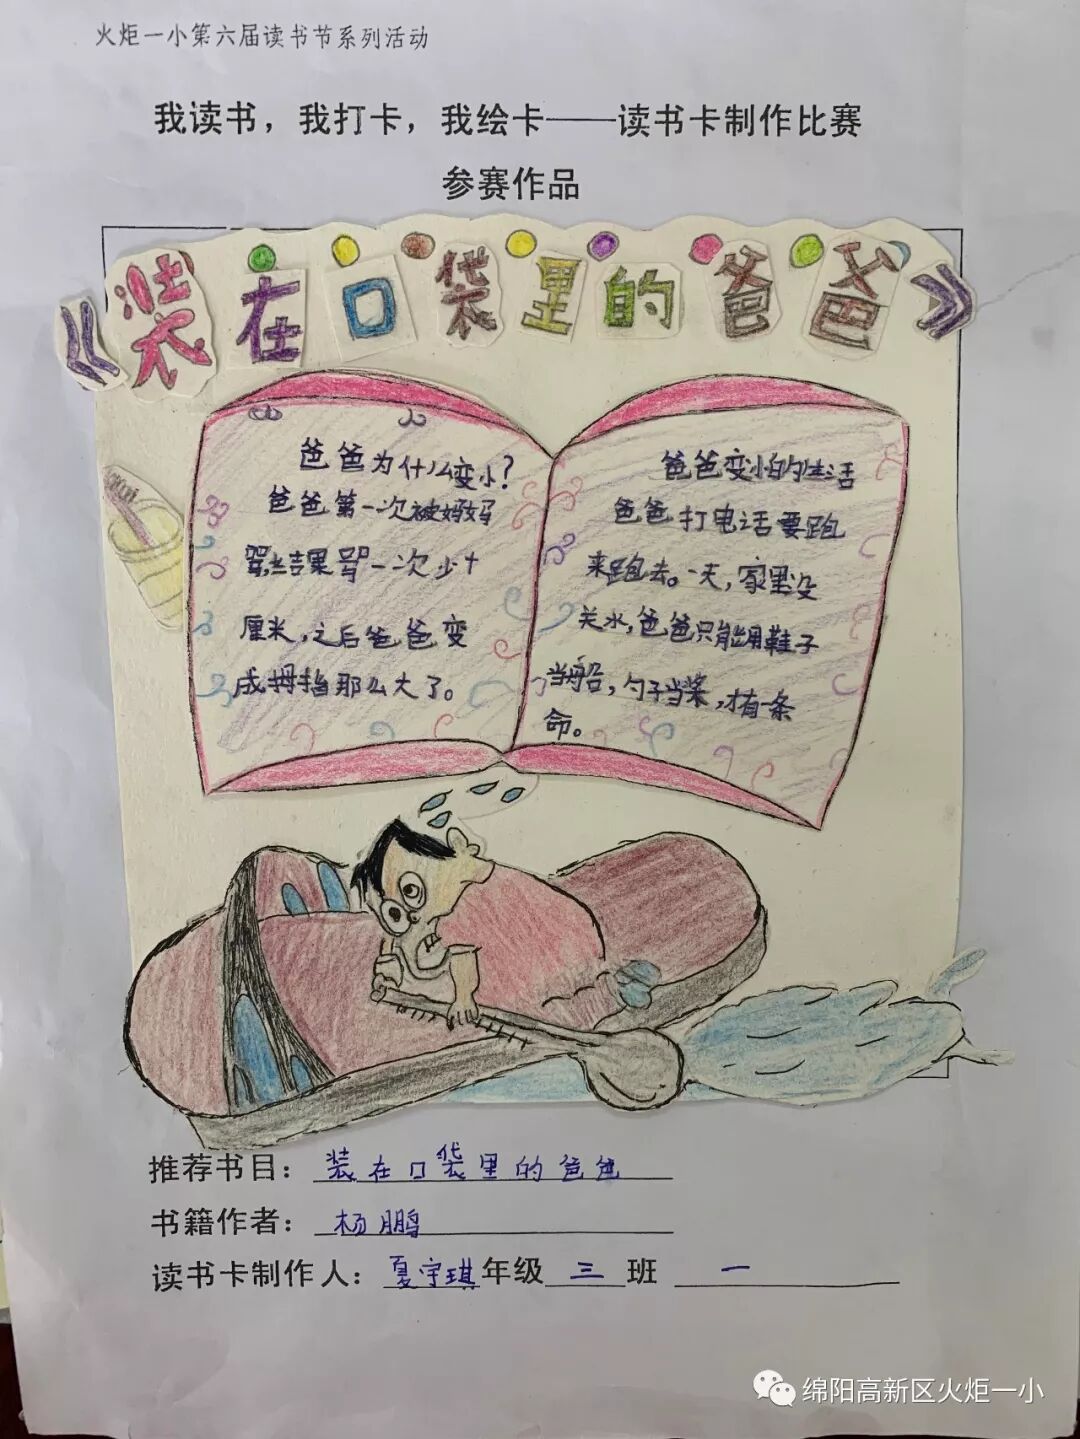 火炬一小第六届读书节系列活动
我读书，我打卡，我绘卡——读书卡制作比赛
参赛作品
《装在口袋里的爸爸》
爸爸为什么变小？
爸爸第一次被妈妈
骂,结果骂一次少十
厘米，之后爸爸变
成拇指那么大了。
爸爸变小的生活
爸爸打电话要跑
来跑去。一天，家里没
关水，爸爸只能用鞋子
当船，勺子当桨，才有一条
命。
推荐书目：装在口袋里的爸爸
书籍作者：杨鹏
读书卡制作人：夏宇琪年级三班一
绵阳高新区火炬一小